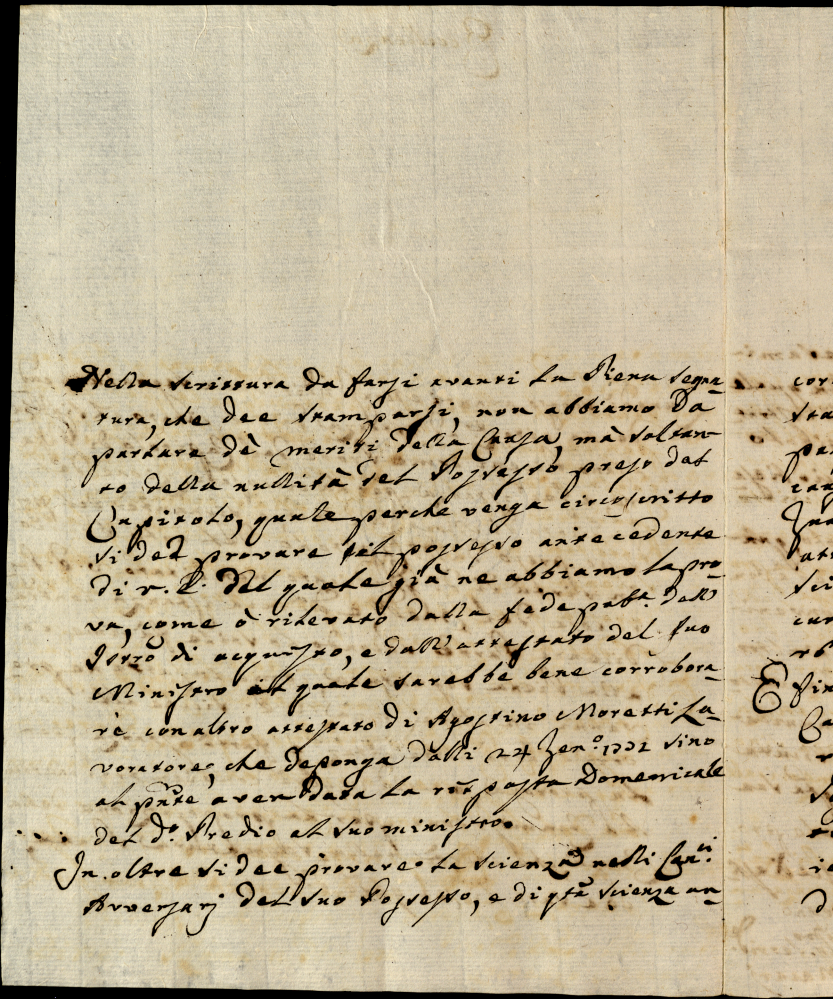 Nella scrittura da farsi avanti la Piena Segna-
tura, che dee stamparsi, non abbiamo da
parlare dè meriti della Causa, mà soltan-
to della nullità del Possesso preso dal
Capitolo, quale perche venga circoscritto
si dee provare il possesso antecedente
di v. E. del quale già ne abbiamo la pro-
va, come ò rilevato dalla fede pub.ª dell'
Istrõ di acquisto, e dall'attestato del suo
Ministro il quale sarebbe bene corrobora-
re con altro attestato di Agostino Moretti La-
voratore, che deponga dalli 24 Zen.º 1732 sino
al pñte aver data la risposta Domenicale
del d.º Predio al suo ministro.
In oltre si dee provare la scienza nelli Can.ci
Avversarj del suo Possesso, e di q̃ta scienza an-
cor
sta
E